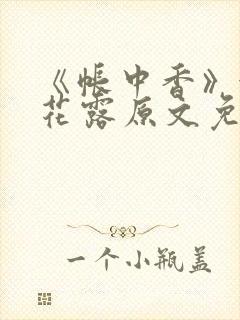 《帐中香》
花露原文免
一个小瓶盖